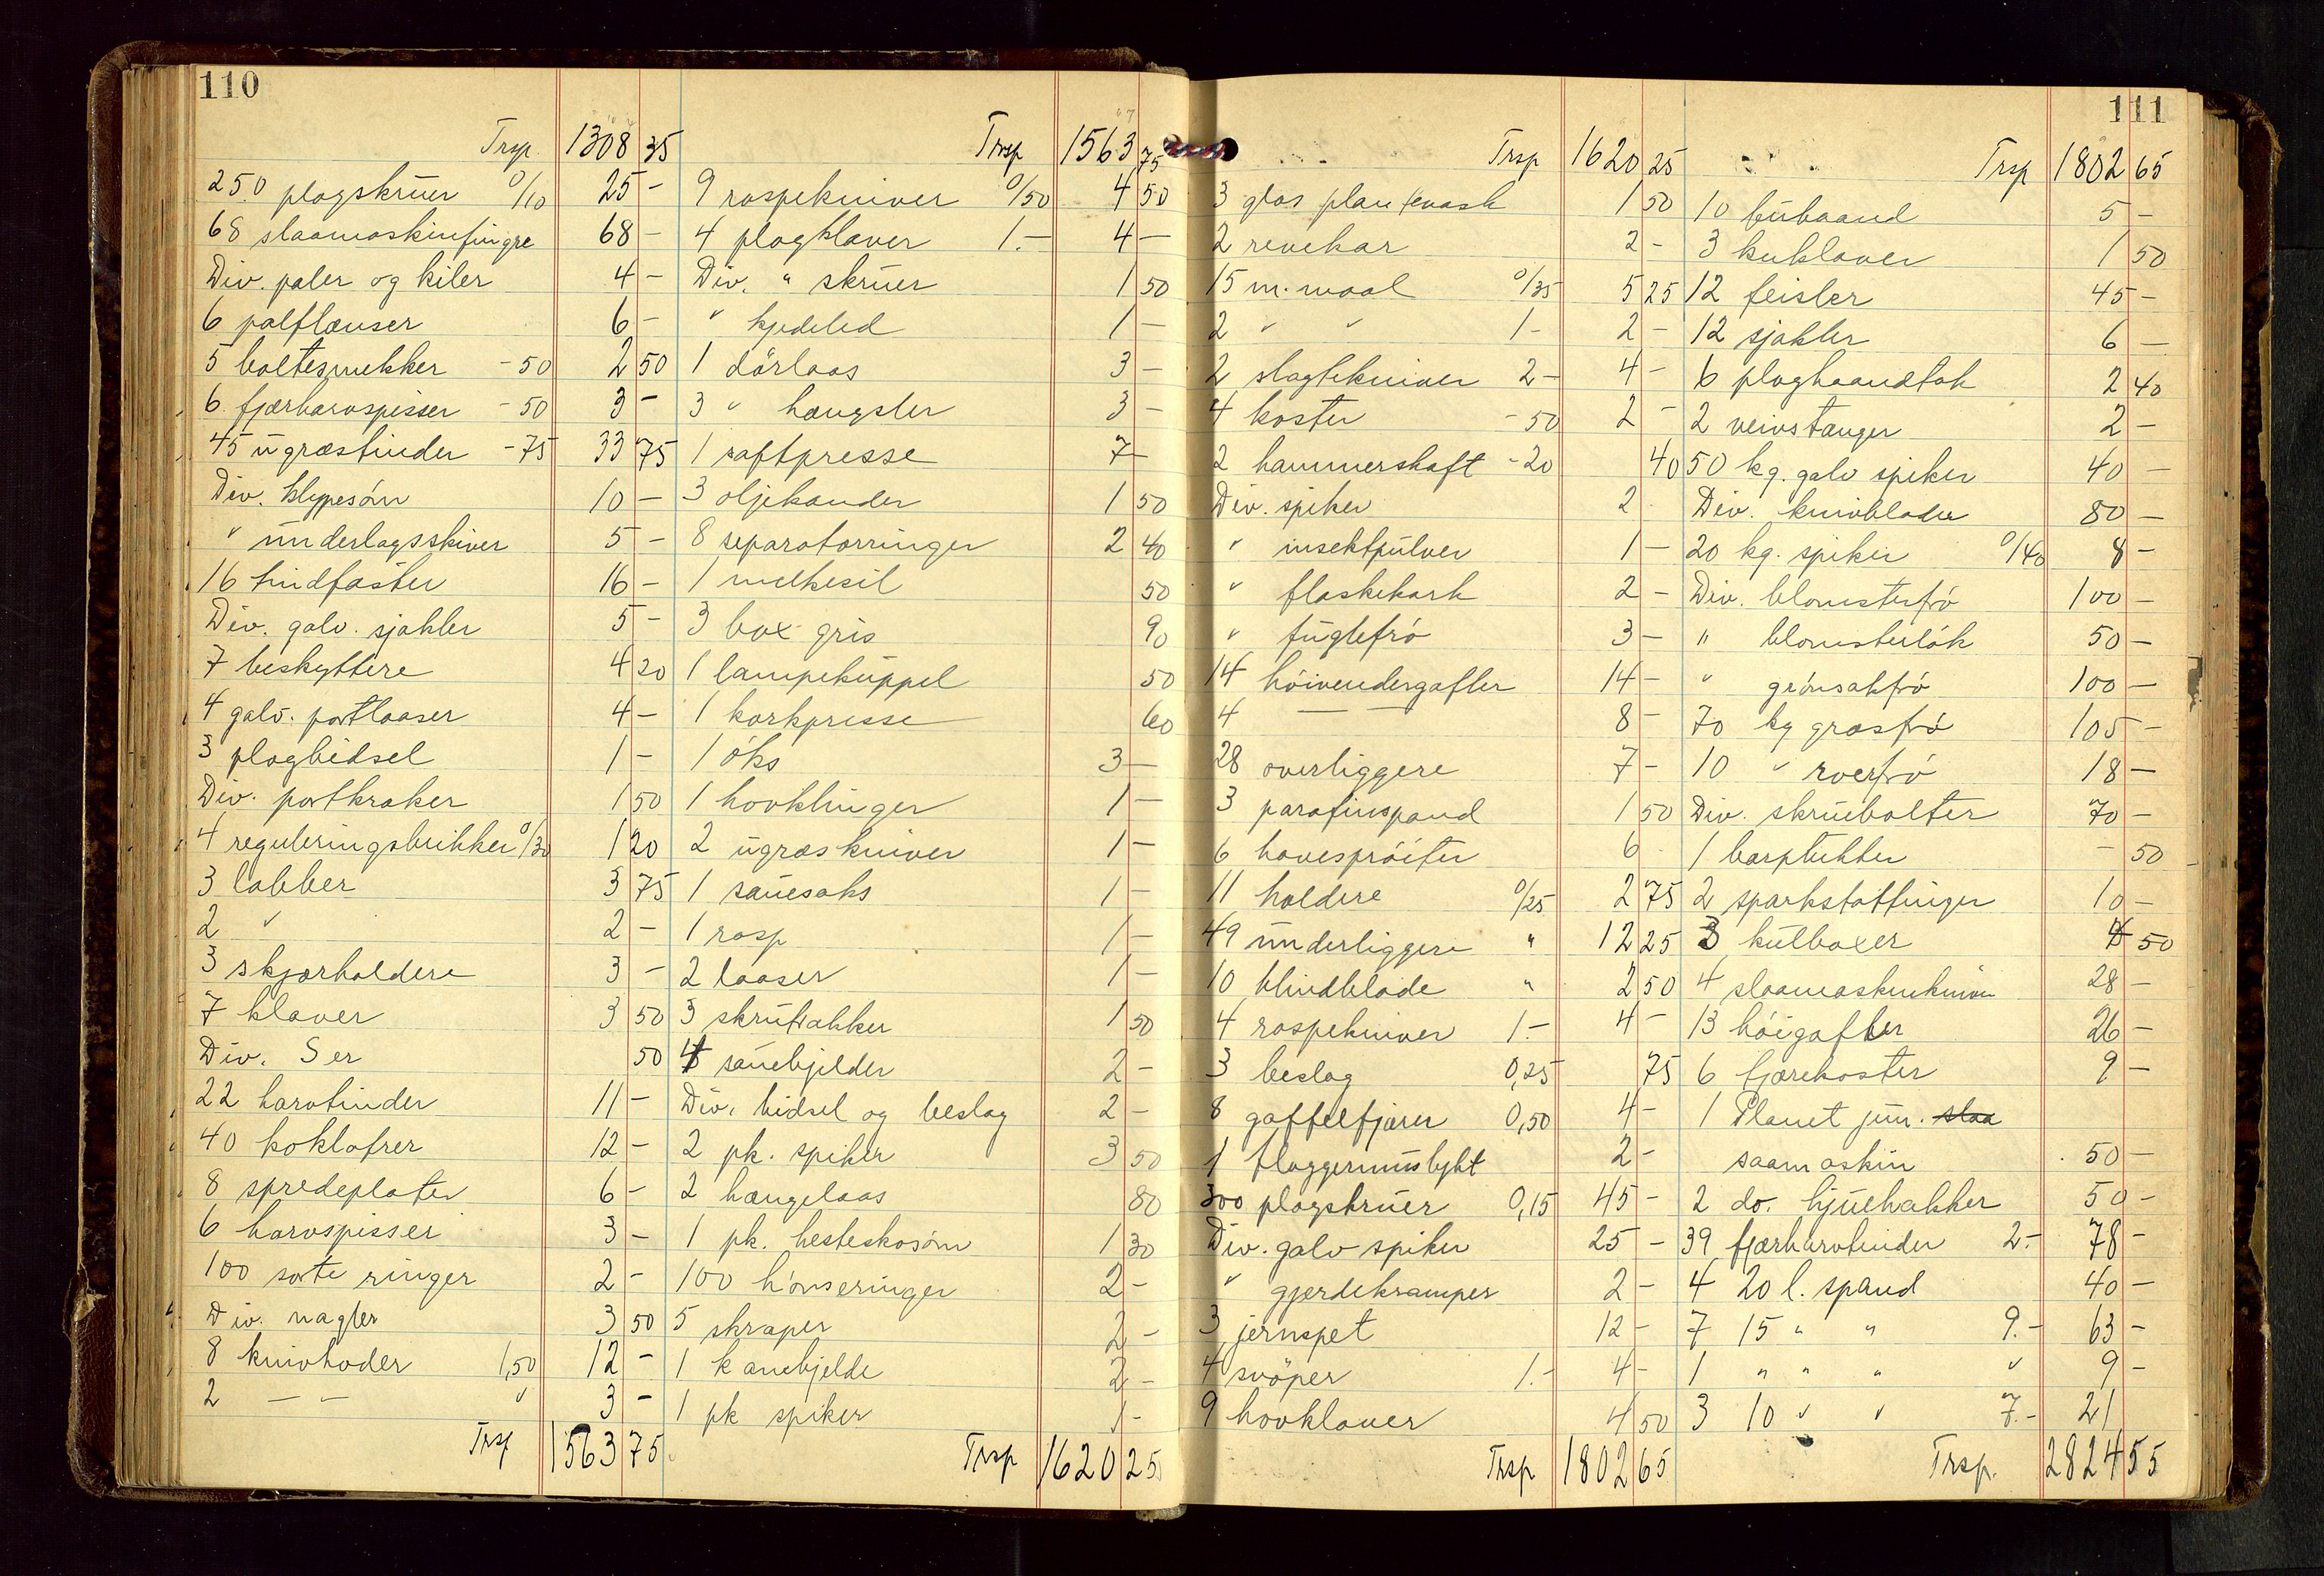 110
Trsp. 1308 35
250 plogskrüer 0/10 25 -
68 slaamaskinfingre 68 -
Div. paler og kiler 4 -
6 palflanser 6 -
5 boltesmekker - 50 2 50
6 fjærharvspisser - 50 3 -
45 ügræstinder - 75 33 75
Div. klippesöm 10 -
" ünderlagsskiver 5 -
16 tindfæster 16 -
Div. galv. sjakler 5 -
7 beskyttere 4 20
4 galv. portlaaser 4 -
3 plogbidsel 1 -
Div. portkroker 1 50
4 reguleringsbrikker 0/30 1 20
3 labber 3 75
2 " 2 -
3 skjærholdere 3 -
7 klaver 3 50
Div. S er 50
22 harvtinder 11 -
40 koklafrer 12 -
8 spredeplater 6 -
6 harvspisser 3 -
100 sorte ringer 2 -
Div. nagler 3 50
8 knivhoder 1,50 12 -
2 — — " 3 -
Trsp 1563 75
Trsp 1563 75
9 raspekniver 0/50 4 50
4 plogklaver 1.- 4 -
Div. " skrüer 1 50
" kjedeled 1 -
1 dörlaas 3 -
3 " hængsler 3 -
1 saftpresse 7 -
3 oljekander 1 50
8 separatorringer 2 40
1 melkesil 50
3 box gris 90
1 lampeküppel 50
1 korkpresse 60
1 öks 3 -
1 hovklinger 1 -
2 ügræskniver 1 -
1 sauesaks 1 -
1 rasp 1 -
2 laaser 1 -
3 skrütrækker 1 50
4 sauebjelder 2 -
Div. bidsel og beslag 2 -
2 pk. spiker 3 50
2 hængelaas 80
1 pk. hesteskosöm 1 30
100 hönseringer 2 -
5 skraper 2 -
1 kanebjelde 2 -
1 pk spiker 1 -
Trsp 1620 25
Trsp 1620 25
3 glas plantevask 1 50
2 revekar 2 -
15 m. maal 0/35 5 25
2 " " 1- 2 -
2 slagtekniver 2- 4 -
4 koster - 50 2 -
2 hammerskaft - 20 40
Div. spiker 2
" insektpülver 1 -
" flaskekork 2 -
" füglefrö 3 -
14 höivendergafler 14 -
4 — — 8 -
28 overliggere 7 -
3 parafinspand 1 50
6 havespröiter 6
11 holdere 0/25 2 75
49 ünderliggere " 12 25
10 blindblade " 2 50
4 raspekniver 1.- 4 -
3 beslag 0,25 75
8 gaffelfjærer 0,50 4 -
1 flaggermuslykt 2 -
300 plogskrüer 0,15 45 -
Div. galv spiker 25 -
" gjerdekramper 2 -
3 jernspet 12 -
4 svöper 1.- 4 -
9 hovklaver 4 50
Trsp 1802 65
111
Trsp 1802 65
10 bübaand 5 -
3 kuklaver 1 50
12 feisler 45 -
12 sjakler 6 -
6 ploghaandtak 2 40
2 veivstænger 2 -
50 kg. galv spiker 40 -
Div. knivblader 80 -
20 kg. spiker 0/40 8 -
Div. blomsterfrö 100 -
" blomsterlök 50 -
" grönsakfrö 100 -
70 kg græsfrö 105 -
10 " roefrö 18 -
Div. skruebolter 70 -
1 bærplukker - 50
2 sparkstöttinger 10 -
3 kulboxer 4 50
4 slaamaskinkniver 28 -
13 höigafler 26 -
6 fjærekoster 9 -
1 Planet jün. slaa
saamaskin 50 -
2 do. hjülhakker 50 -
39 fjærharvtinder 2.- 78 -
4 20 l. spand 40 -
7 15 " " 9.- 63 -
1 " " " " 9 -
3 10 " " 7.- 21
Trsp. 2824 55